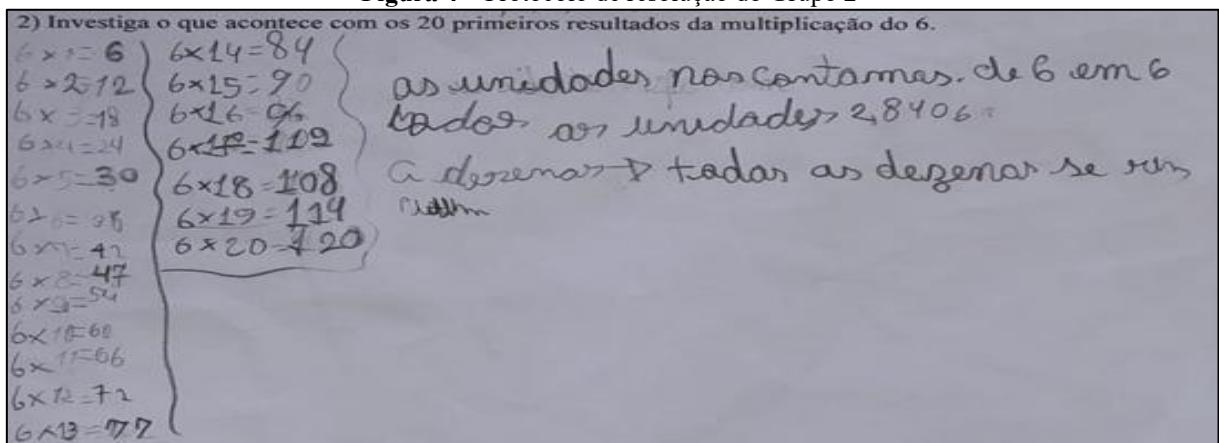 2) Investiga o que acontece com os 20 primeiros resultados da multiplicação do 6.
6 x 1 = 6
6 x 2 = 12
6 x 3 = 18
6 x 4 = 24
6 x 5 = 30
6 x 6 = 36
6 x 7 = 42
6 x 8 = 47
6 x 9 = 54
6 x 10 = 60
6 x 11 = 66
6 x 12 = 72
6 x 13 = 77
6x14=84
6x15=90
6x16=96
6x17=102
6x18=108
6x19=114
6x20=120
as unidades nos contamos. de 6 em 6
todos as unidades 2,8406.
a dezenas todas as dezenas se